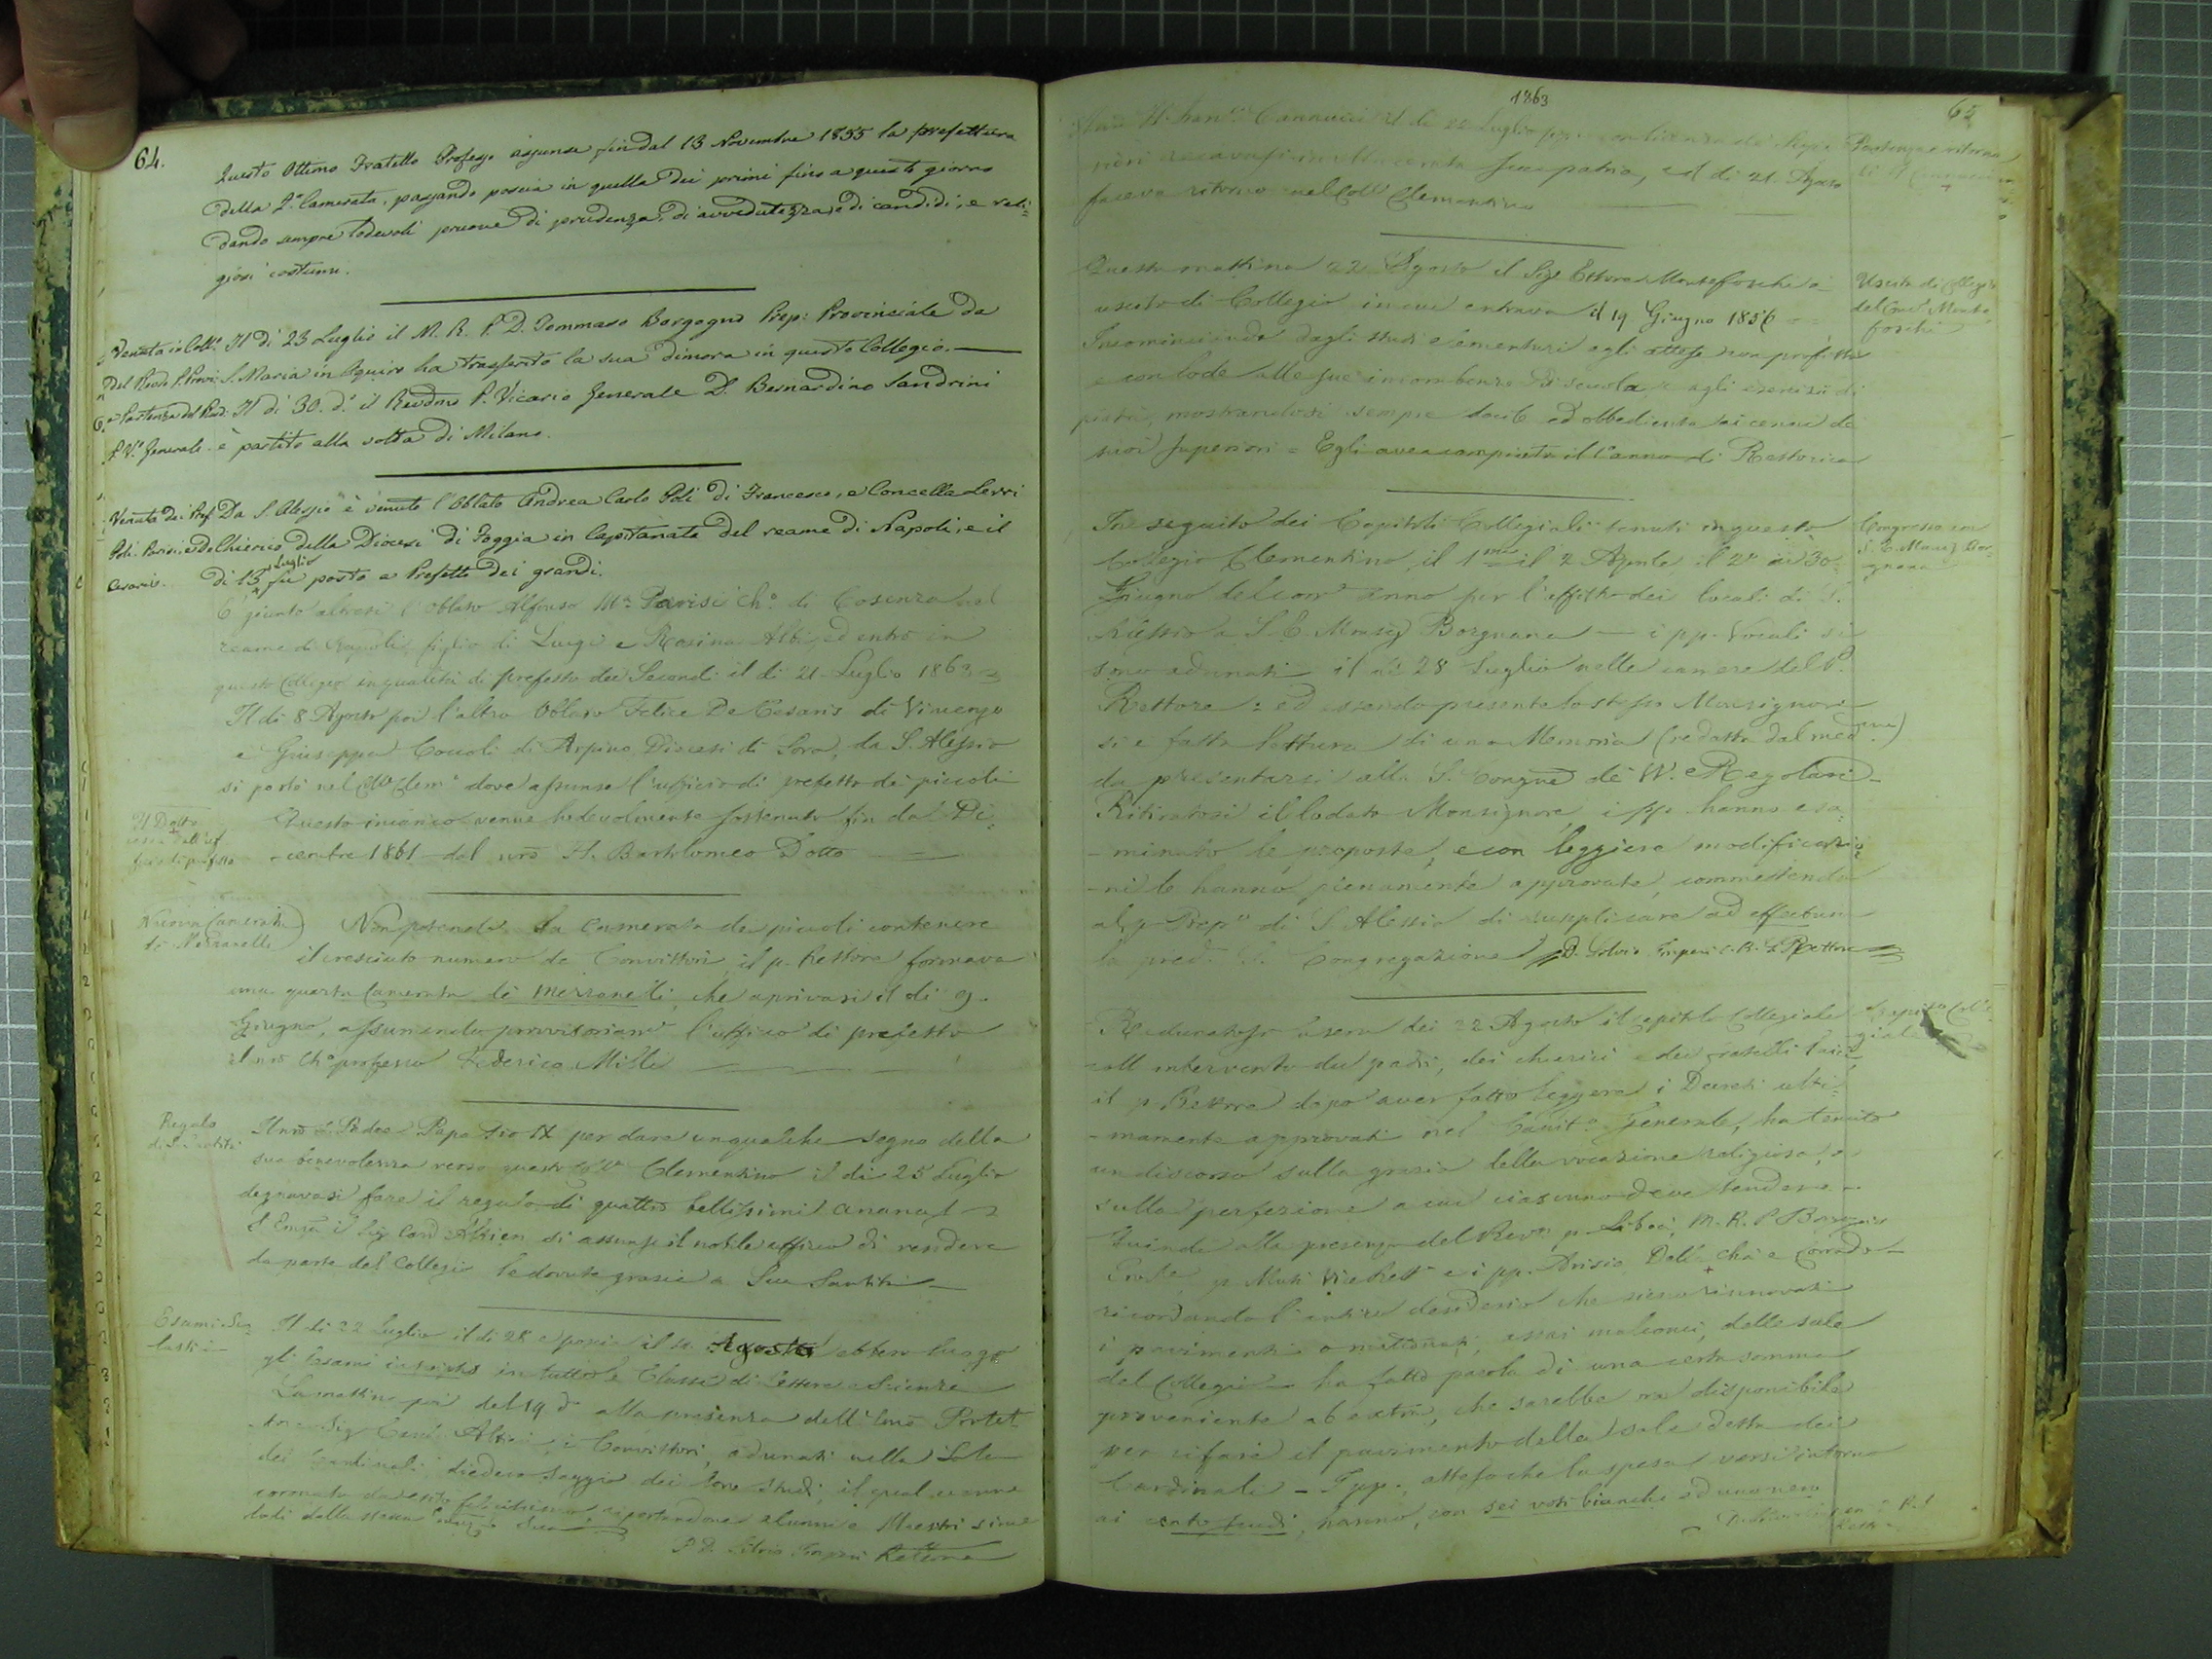 64.
Questo Ottimo Fratello Professo assunse fin dal 13 Novembre 1855 la prefettura
della 2.a Camerata, passando poscia in quella dei primi fino a questi giorni
dando sempre lodevoli pruove di prudenza, di avvedutezza, e di candidi, e reli-
giosi costumi.
Venuta in Coll.o
del Rndo P. Prov:
Il dì 23 Luglio il M. R. P. D. Tommaso Borgogno Prep: Provinciale da
S. Maria in Aquiro ha trasferito la sua dimora in questo Collegio.
e Partenza del Rmo:
P. V.o Generale.
Il dì 30. d.o il Revdmo P. Vicario Generale D. Bernardino Sandrini
è partito alla volta di Milano.
Venuta dei Pref.
Poli. Parisi, e de
Cesaris.
Da S. Alessio è venuto l'Oblato Andrea Carlo Poli di Francesco, e Concetta Lerri
Chierico della Diocesi di Foggia in Capitanata del reame di Napoli, e il
dì 13 Luglio fu posto a Prefetto dei grandi.
E' giunto altresì l'Oblato Alfonso M.a Parisi Ch.o di Cosenza nel
reame di Napoli, figlio di Luigi e Rosina Albi, ed entrò in
questo Collegio in qualità di prefetto dei Secondi il dì 21 Luglio 1863
Il dì 8 Agosto poi l'altro Oblato Felice De Cesaris di Vincenzo
e Giuseppa Coccoli di Arpino Diocesi di Sora, da S. Alessio
si portò nel Coll.o Clem.o dove assunse l'ufficio di prefetto dei piccoli
Il Dotto
cessa dall'uf
ficio di prefetto
Questo incarico venne lodevolmente sostenuto fin dal Di-
cembre 1861 dal nro H. Bartolomeo Dotto
Nuova Camerata
di Mezzanelli
Non potendo la Camerata de piccoli contenere
il cresciuto numero de Convittori, il p. Rettore formava
una quarta Camerata di mezzanelli, che aprivasi il dì 9.
Giugno, assumendo provvisoriam.e l'officio di prefetto
il nro Ch.o professo Federico Milli
Regalo
di S. Santità
Il nro S. Padre Papa Pio IX per dare un qualche segno della
sua benevolenza verso questo Coll.o Clementino il dì 25 Luglio
degnavasi fare il regalo di quattro bellissimi ananas
L'Emo il Sig Card Altieri si assunse il nobile officio di rendere
da parte del Collegio le dovute grazie a Sua Santità
Esami Sco-
lastici
Il dì 22 Luglio il dì 28 e poscia il Agosto ebbero luogo
gli Esami in tutte le Classi di Lettere e Scienze
La mattina poi del 19 d.o alla presenza dell'Emo Protet-
tore Sig Card. Altieri, i Convittori, adunati nella Sala
dei Cardinali, diedero saggio dei loro studi, il qual venne
coronato da esito felicissimo, riportandone alunni e Maestri
lodi dalla stessa Emza Sua
P. D. Silvio Imperi Rettore
1863
65
H. Cannucciari il dì 22 Luglio con licenza de Supe-
riori recavasi in Macerata sua patria, ed il dì 21. Agosto
faceva ritorno nel Coll. Clementino
Partenza e ritorno
Questa mattina 22 Agosto il Sig.r Ettore Montefoschi è
uscito di Collegio in cui entrava il 19 Giugno 1856
Incominciando dagli studi elementari egli attese con profitto
e con lode alle sue incombenze di scuola, e agli esercizii di
pietà, mostrandosi sempre docile ed obbediente ai cenni de
suoi Superiori = Egli avea compiuto il 1.o anno di Rettorica
Uscita di Collegio
del Conv.e Monte
foschi
In seguito dei Capitoli Collegiali tenuti in questo
Collegio Clementino, il 1.mo il 2 Aprile, il 2.o ai 30
Giugno del corr.e anno per l'affitto dei locali di S.
Alessio a S. E. Monsig Borgnana — i pp. Vocali si
sono adunati il dì 28 Luglio nelle camere del P.
Rettore: ed essendo presente lo stesso Monsignore
si è fatta lettura di una Memoria (redatta dal med.mo)
da presentarsi alla S. Congne de VV. e Regolari
Ritiratosi il lodato Monsignore, i pp. hanno esa-
minato le proposte, e con leggiere modificazio-
ni le hanno pienamente approvate, commettendo
al p Prep.o di S. Alessio di supplicare ad effectum
la pred.a S. Congregazione D. Silvio Imperi C. R. S. Rettore
Congresso con
S. E. Monsig Bor-
gnana
Radunatosi la sera dei 22 Agosto il Capitolo Collegiale
coll'intervento dei padri, dei chierici e dei fratelli laici
il p. Rettore dopo aver fatto leggere i Decreti ulti-
mamente approvati nel Capit.o Generale, ha tenuto
un discorso sulla grazia della vocazione religiosa, e
sulla perfezione a cui ciascuno deve tendere
Quindi alla presenza del Rev.o p. Libois, M. R. P. Borgogno
Prov.le, p. Muti Vice Rett.e e i pp. Arisio Dalla Chà e Corrado
ricordando l'antico desiderio che siano rinnovati
i pavimenti assai malconci, delle sale
del Collegio, ha fatto parola di una certa somma
proveniente ab extra, che sarebbe ora disponibile
per rifare il pavimento della sala detta dei
Cardinali — I pp., atteso che la spesa versi intorno
ai cento scudi, hanno, con sei voti bianchi ed uno nero
Capitolo Colle-
giale